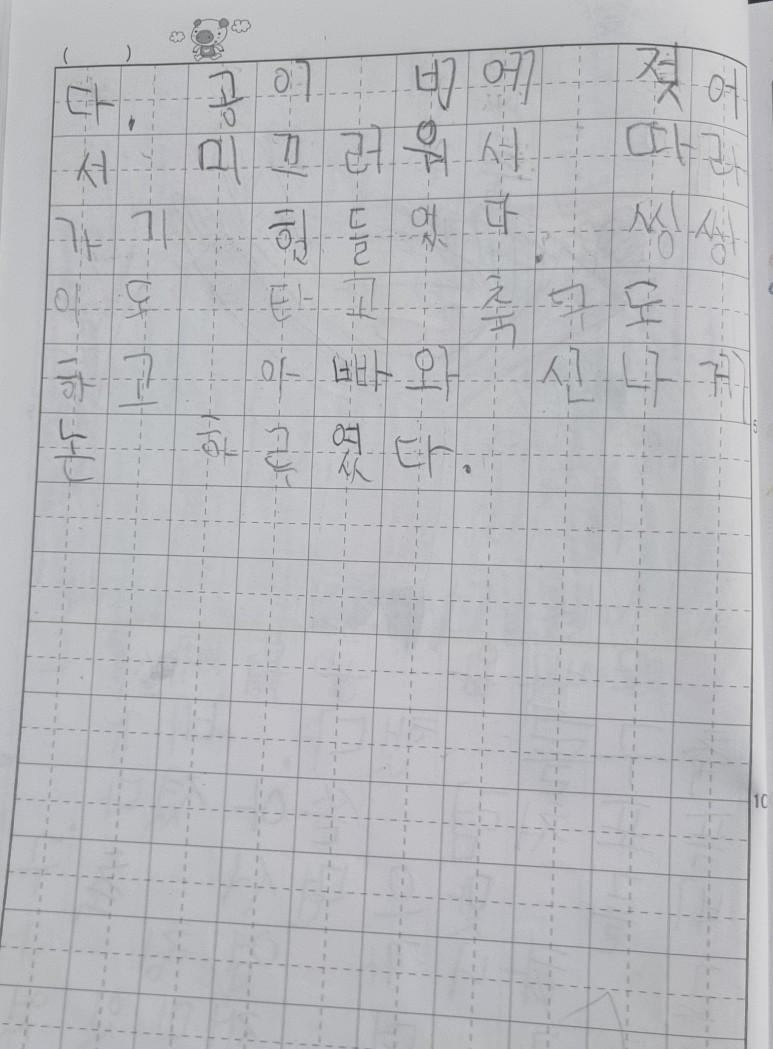 ( )
다. 공이 비에 젖어
서 미끄러워서 따라
가기 힘들었다. 씽씽
이도 타고 축구도
하고 아빠와 신나게
5
논 하루였다.
10